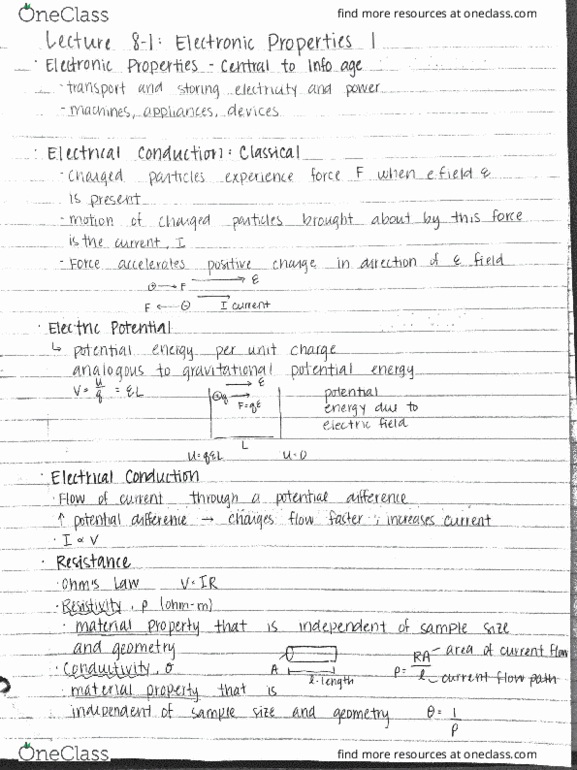 OneClass find more resources at oneclass.com
Lecture 8-1: Electronic Properties 1
· Electronic Properties - Central to Info age
· transport and storing electricity and power
- machines, appliances, devices
· Electrical Conduction: Classical
· Charged particles experience force F when efield ε
is present
- motion of charged particles brought about by this force
is the current, I
- Force accelerates positive charge in direction of ε field
⊕→F ε
F←⊖ I current
· Electric Potential
↳ potential energy per unit charge
analogous to gravitational potential energy
V = u/q = εL
⊕q ε
F=qε
potential
energy due to
electric field
L
u=qεL u=0
· Electrical Conduction
· Flow of current through a potential difference
↑ potential difference → charges flow faster ; increases current
· I ∝ V
· Resistance
· Ohm's Law V=IR
· Resistivity, ρ (ohm-m)
· material property that is independent of sample size
and geometry
A l-length
ρ = RA/l
area of current flow
current flow path
· Conductivity, σ
· material property that is
independent of sample size and geometry θ = 1/ρ
OneClass find more resources at oneclass.com